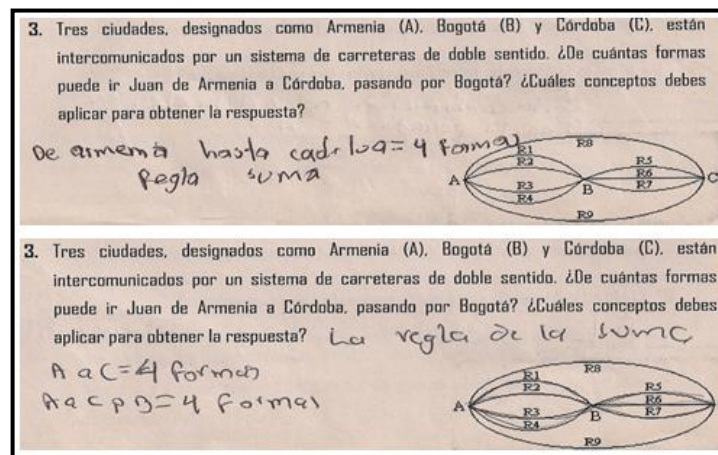 3. Tres ciudades, designados como Armenia (A), Bogotá (B) y Córdoba (C), están
intercomunicados por un sistema de carreteras de doble sentido. ¿De cuántas formas
puede ir Juan de Armenia a Córdoba, pasando por Bogotá? ¿Cuáles conceptos debes
aplicar para obtener la respuesta?
De armenia hasta = 4 formas
Regla suma
R8
R1
R2
R3
R4
R5
R6
R7
R9
A
B
C
3. Tres ciudades, designados como Armenia (A), Bogotá (B) y Córdoba (C), están
intercomunicados por un sistema de carreteras de doble sentido. ¿De cuántas formas
puede ir Juan de Armenia a Córdoba, pasando por Bogotá? ¿Cuáles conceptos debes
aplicar para obtener la respuesta? La regla de la suma
A a C = 4 formas
A a C p B = 4 formas
R8
R1
R2
R3
R4
R5
R6
R7
R9
A
B